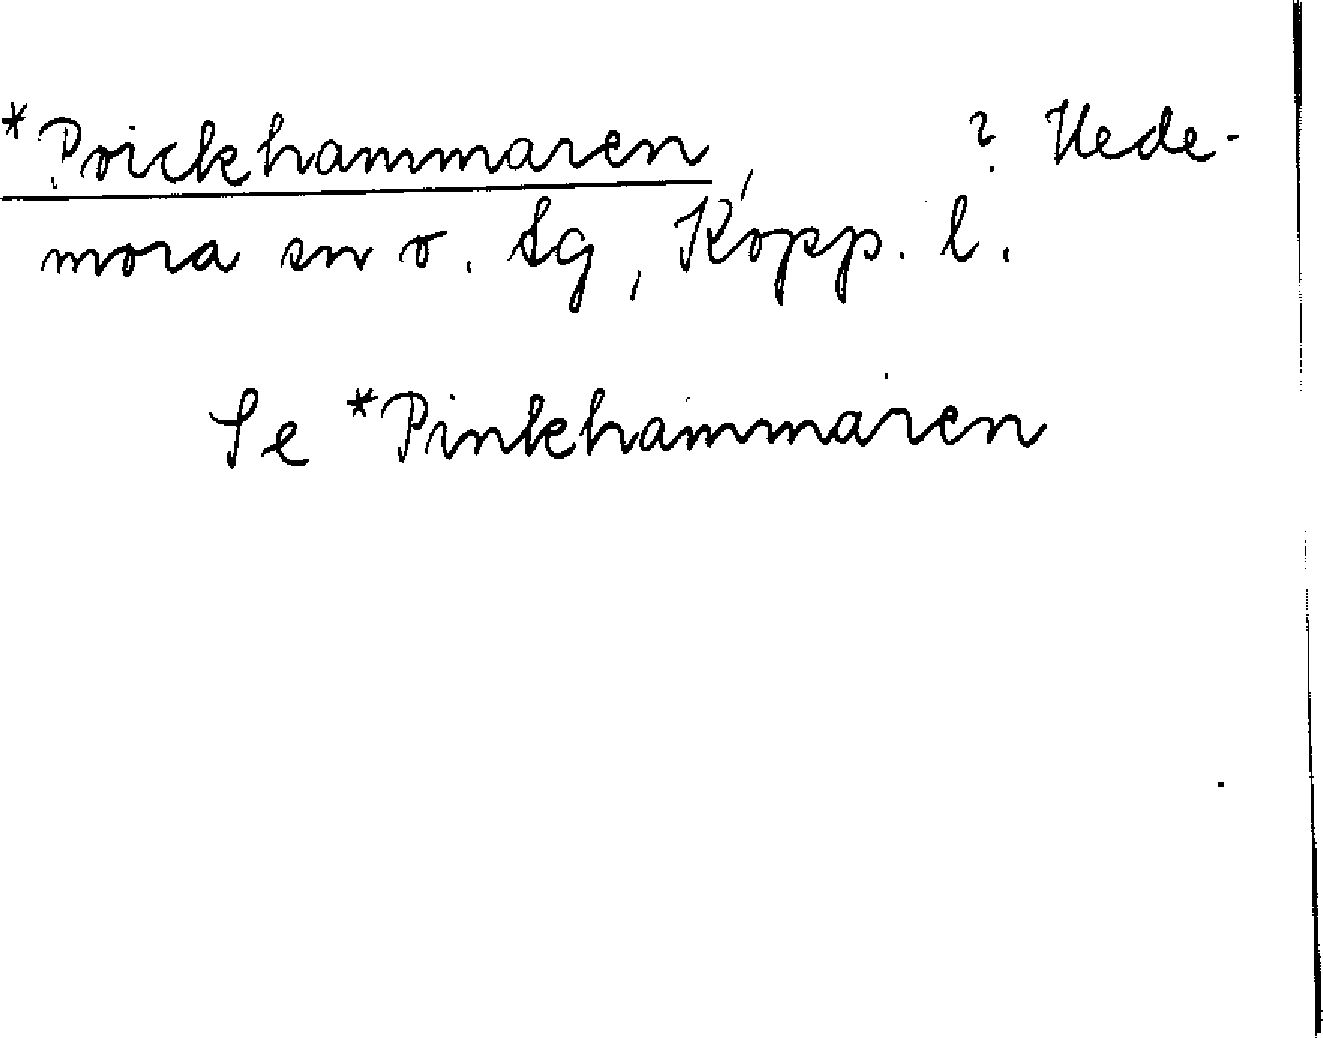 *Prickhammaren, ? Hede-
mora sn o. tg, Kopp. l.
Se *Pinkhammaren